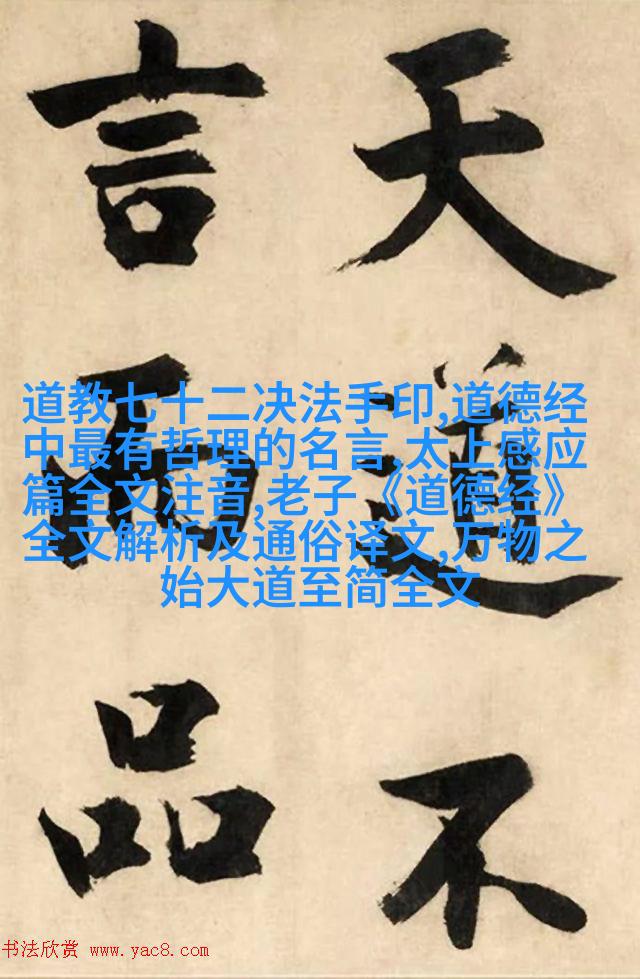 天道不
言而品
道教七十二决法手印,道德经
中最有哲理的名言,太上感应
篇全文注音,老子《道德经》
全文解析及通俗译文,万物之
始大道至简全文
书法欣赏 www.yac8.com